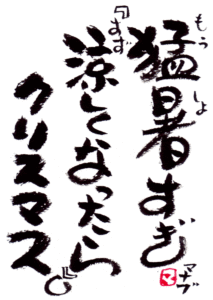 猛暑すぎ
もうしょ
『涼しくなったら
すず
クリスマス』
マナブ
マ